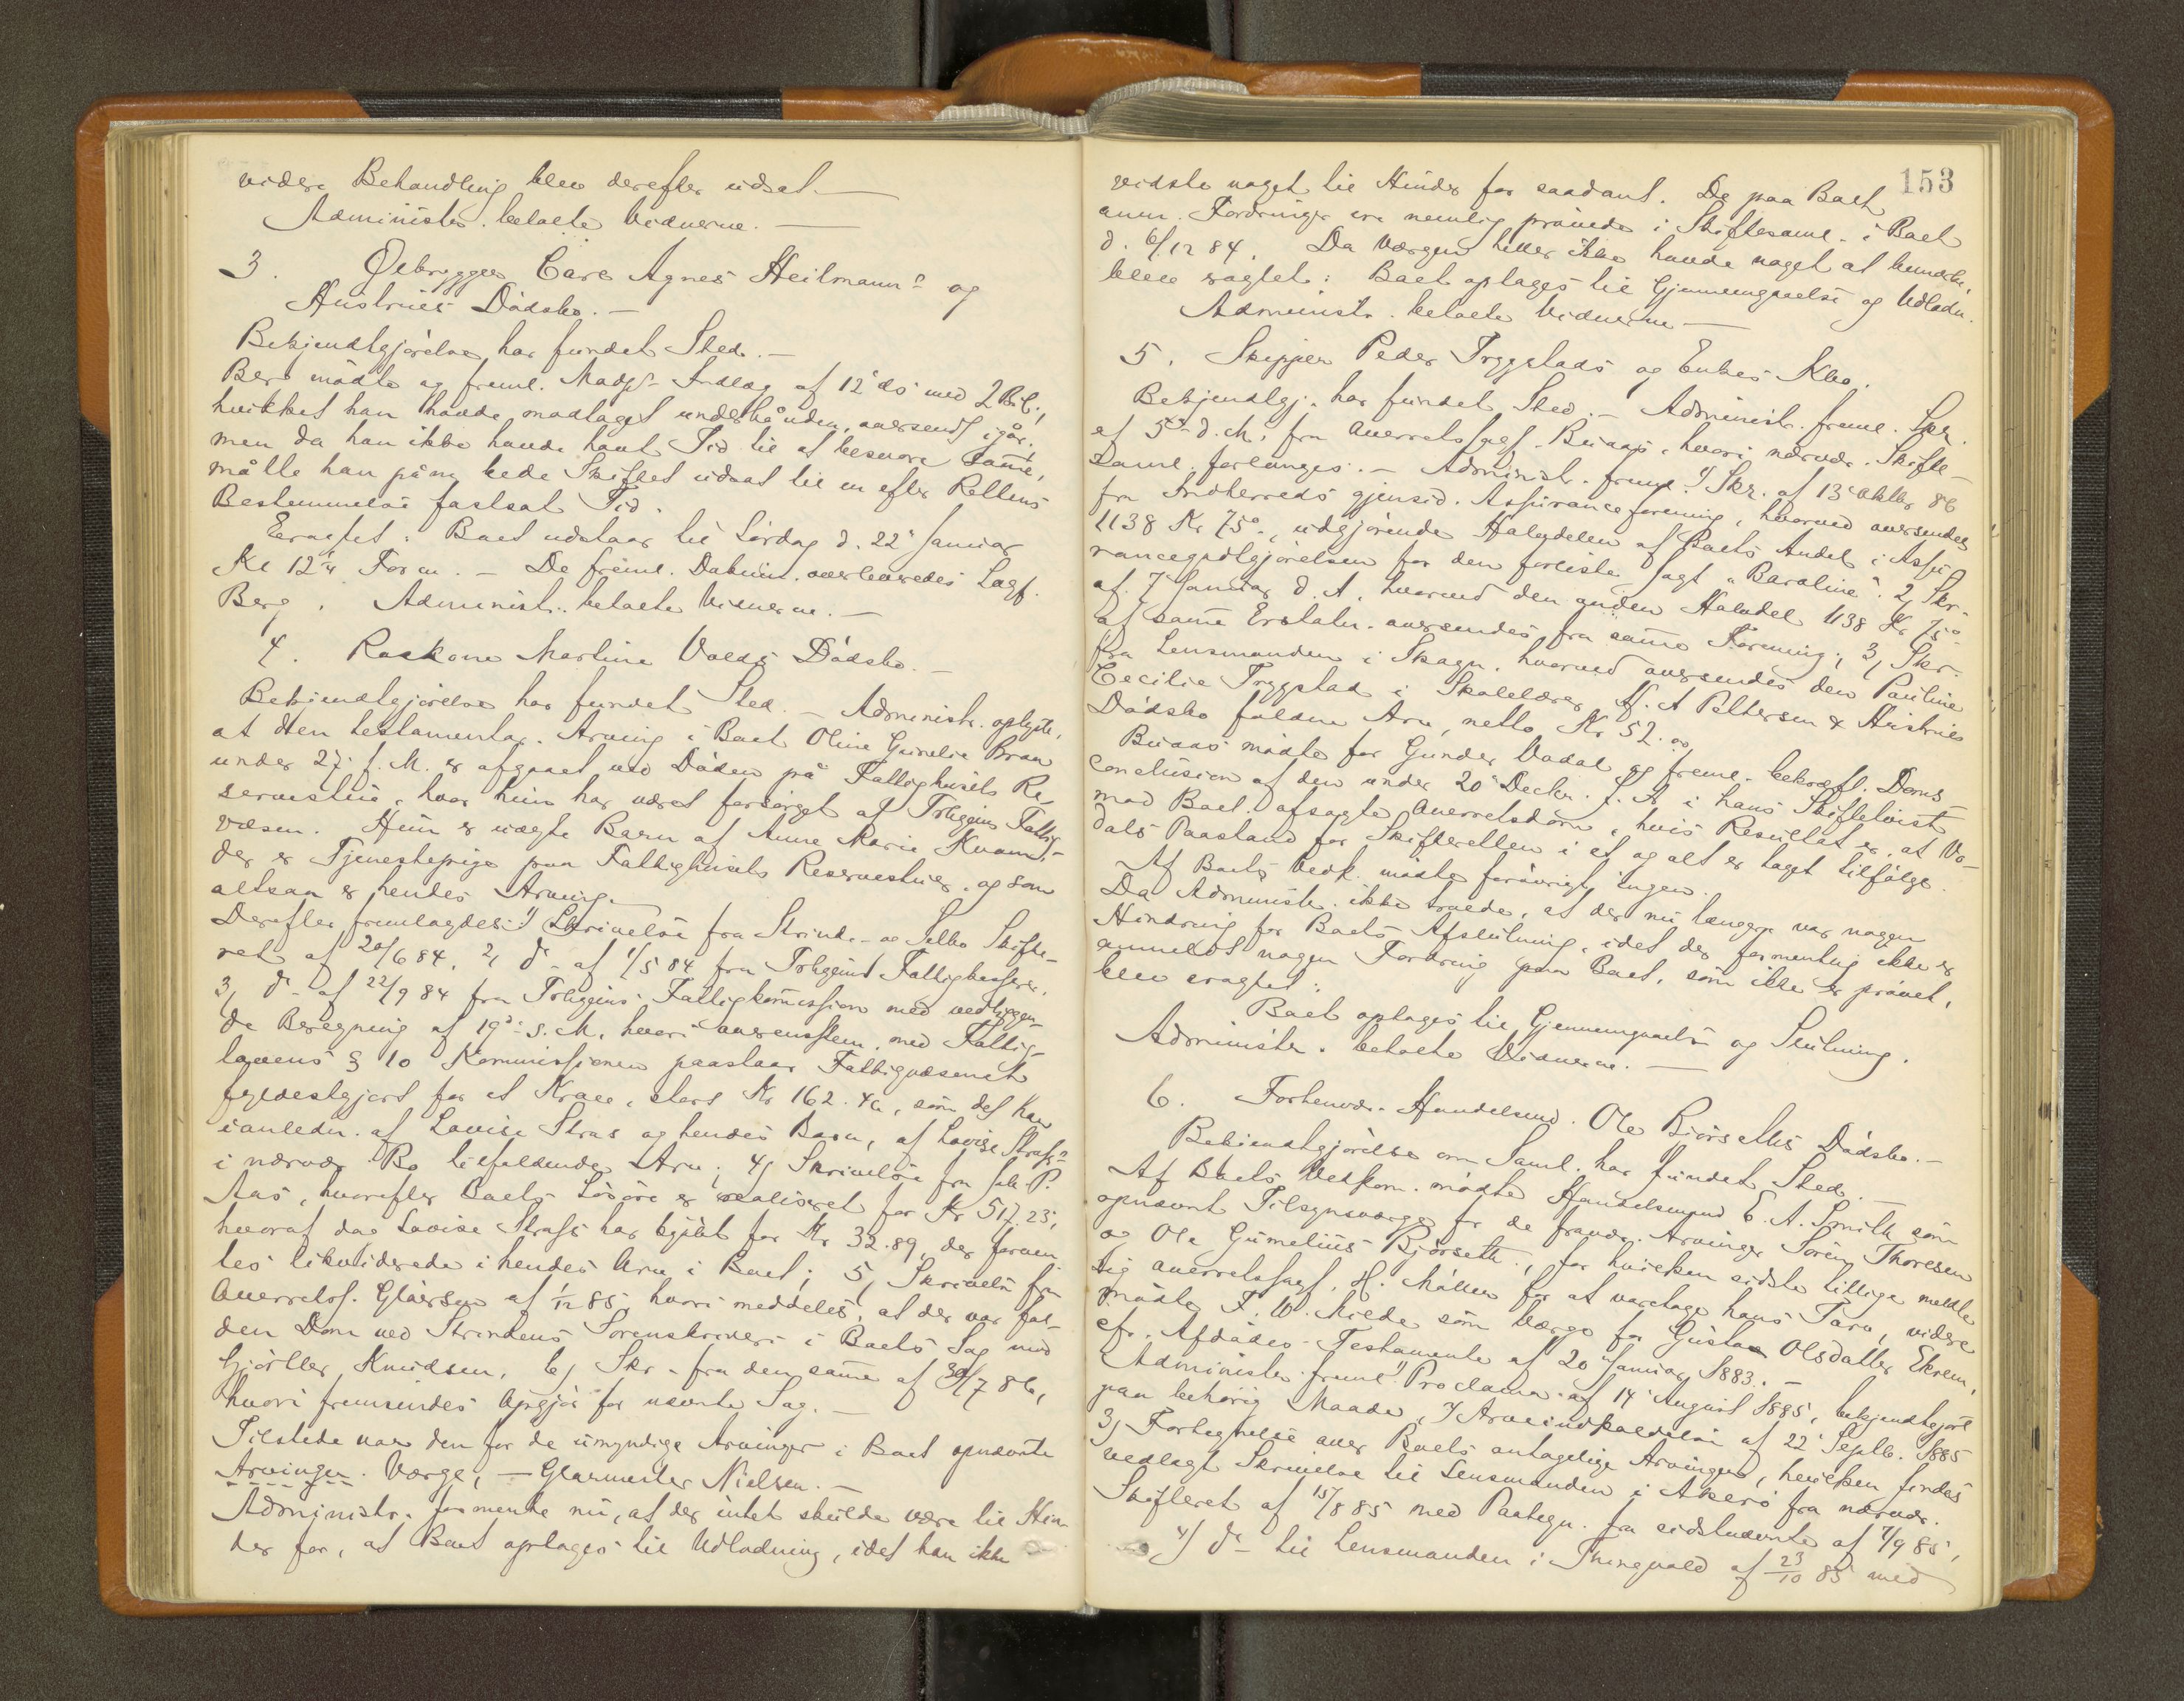 videre Behandling blev derefter udsat. —
Administr. betalte Vidnerne. —
3. Ølbrygger Carl Agnes Heilmanns og
Hustrues Dødsbo. —
Bekjendtgjørelse har fundet Sted. —
Berg mødte og freml. Modp. Indlæg af 12 ds med 2 Bil.,
hvilket han havde modtaget underhånden, oversendt igår,
men da han ikke havde havt Tid til at besvare samme,
måtte han påny bede Skiftet udsat til en efter Rettens
Bestemmelse fastsat Tid.
Eragtet: Boet udstaar til Lørdag d. 22 Januar
Kl 12¼ Form. — De freml. Dokum. overleveredes Sagf.
Berg. Administr. betalte Vidnerne. —
4. Rockone Martine Volds Dødsbo. —
Bekjendtgjørelse har fundet Sted. — Administr. oplyste,
at den testamentar. Arving i Boet Oline Gurelie Bran
under 27. f. M. er afgaaet ved Døden på Fattighusets Re-
servestue, hvor hun har været forsørget af Trhgjems Fattig-
væsen. Hun er uægte Barn af Anne Marie Knam,
der er Tjenestepige paa Fattighusets Reservestue, og som
altsaa er hendes Arving.
Derefter fremlagdes: 1) Skrivelse fra Strinde- og Selbo Skifte-
ret af 20/6 84. 2, do af 1/5 84 fra Trhgjems Fattigkasserer.
3, do af 22/9 84 fra Trhgjems Fattigkommission med vedliggen-
de Beregning af 19d: s. M. hvori overensstem. med Fattig-
lovens § 10 Kommissionen paastaar Fattigvæsenet
fyldestgjort for et Krav, stort Kr 162.40, som det har
ianledn. af Lovise Strøs og hendes Barn, af Lovise Strøs's
i nærvær. Bo tilfaldende Arv; 4) Skrivelse fra Joh. P.
Aas, hvorefter Boets Løsøre er realiseret for Kr 517.23,
hvoraf dog Lovise Strøs har kjøbt for Kr 32.89, der forven-
tes likvideret i hendes Arv i Boet; 5) Skrivelse fra
Overretssf. Gløersen af 1/12 85, hvori meddeles, at der var fal-
den Dom ved Strindens Sorenskriveri i Boets Sag mod
Gjørtler Knudsen, 6) Skr. fra den samme af 30/7 86,
hvori fremsendes Opgjør for nævnte Sag. —
Tilstede var den for de umyndige Arvinger i Boet opnævnte
Arvinger. Værge, — Glarmester Nielsen. —
Administr. formente nu, at der intet skulde være til Hin-
der for, at Boet optages til Udlodning, idet han ikke
153
vidste noget til Hinder for saadant. De paa Boet
anm. Fordringer ere nemlig prøvede i Skiftesaml. i Boet
d. 6/12 84. Da Værgen heller ikke havde noget at bemærke,
blev eragtet: Boet optages til Gjennemgaaelse og Udlodn.
Administr. betalte Vidnerne —
5. Skipper Peder Trygstads og Enkes Kbo.
Bekjendtgj. har fundet Sted. — Administr. freml. Skr.
af 5te d. M. fra Overretssagf. Buaas, hvori nærvær. Skifte-
saml. forlanges. — Administr. freml. 1) Skr. af 13 Oktbr 86
fra Indherreds gjensid. Assuranceforening, hvorved oversendes
1138 Kr 75 ø, udgjørende Halvdelen af Boets Andel i Assu-
rancegodtgjørelsen for den forliste Jagt "Baroline". 2, Skr.
af 7 Januar d. A. hvorved den anden Halvdel 1138 Kr 75 ø
af samme Erstatn. oversendes fra samme Forening; 3, Skr.
fra Lensmanden i Skogn. hvorved oversendes den Pauline
Cecilie Trygstad i Skolelærer N. A Pettersen & Hustrues
Dødsbo faldne Arv, netto Kr 52.00
Buaas mødte for Gunder Vadal og freml. bekræft. Doms-
conclusion af den under 20 Decbr. f. A. i hans Skiftetvist
mod Boet afsagte Overretsdom, hvis Resultat er, at Va-
dals Paastand for Skifteretten i et og alt er taget tilfølge.
Af Boets Vedk. mødte forøvrigt ingen.
Da Administr. ikke troede, at der nu længere var nogen
Hindring for Boets Afslutning, idet der formentlig ikke er
anmeldt nogen Fordring paa Boet, som ikke er prøvet,
blev eragtet:
Boet optages til Gjennemgaaelse og Slutning.
Administr. betalte Vidnerne. —
6. Forhenvær. Handelsmd. Ole Bjørseths Dødsbo. —
Bekjendtgjørelse om Saml. har fundet Sted. —
Af Boets Vedkom. mødte Handelsmand E. A. Smith som
opnævnt Tilsynsværge for de fravær. Arvinger Søren Thoresen
og Ole Gumelius Bjørseth, for hvilken sidste tillige meldte
sig overretssagf. H. Møller for at varetage hans Tarv, videre
mødte F. W. Milde som Værge for Gustava Olsdatter Ekrem,
cfr. Afdødes Testamente af 20 Januar 1883. —
Administr. freml. 1) Proclama af 14 August 1885, bekjendtgjort
paa behørig Maade, 2) Arveindkaldelse af 22 Septb. 1885
3) Fortegnelse over Boets antagelige Arvinger, hvilken findes
vedlagt Skrivelse til Lensmanden i Akerø fra nærvær.
Skifteret af 15/8 85 med Paategn. fra sidstnævnte af 7/9 85,
4) do til Lensmanden i Thingvold af 23/10 85 med